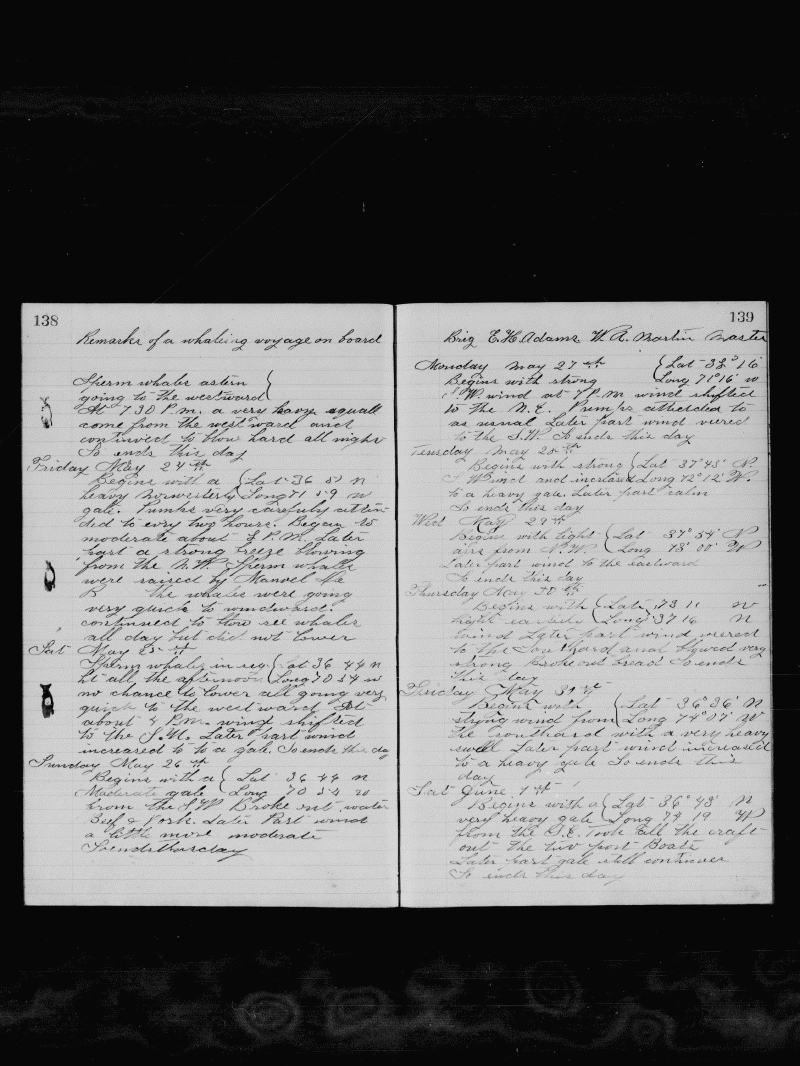 138
Remarks of a whaleing voyage on board
Sperm whales astern
going to the westward
At 7 30 P.m. a very heavy squall
come from the westward and
continued to blow hard all night
So ends this day
Friday May 24th
Begins with a Lat 36 52 N
heavy Norwesterly Long 71 59 W
gale. Pumks very carefuly atten-
ded to evry two hours. Began to
moderate about P.M. Later
part a strong breeze blowing
from the N.W. Sperm whales
were raised by Manoel
the whales were going
very quick to windward.
continued to see whales
all day but did not lower
Sat May 25th
Sperm whales in Lat 36 44 N
ht all the afternoon Long 70 54 W
no chance to lower all going very
quick to the westward At
about 4 P.M. wind shifted
to the S.W. Later part wind
increased to to a gale. So ends the day
Sunday May 26th
Begins with a Lat 36 44 N
Moderate gale Long 70 54 W
from the S.W. Broke out water
Beef & Pork. Later Part wind
a little more moderate
So ends this day
139
Brig E.H. Adams W.A. Martin Master
Monday May 27th Lat 38° 16'
Begins with strong Long 71° 16' W
S W wind at 7 P.M wind shifted
to the N.E. Pumps attended to
as usual Later part wind veered
to the S.W. So ends this day
Tuesday May 28th
Begins with strong Lat 37° 45' N.
S W wind and increased Long 72° 12' W.
to a heavy gale. Later part calm
So ends this day
Wed May 29th
Begins with light Lat 37° 54' N
airs from N.W. Long 73° 00' W
Later part wind to the eastward
So ends this day
Thursday May 30th
Begins with Lat 73 11 W
light easterly Long 37 16 N
wind Later part wind veered
to the Southard and blowed very
strong broke out bread So ends
this day
Friday May 31st
Begins with Lat 36° 36' N
strong wind from Long 74° 07' W
the southard with a very heavy
swell Later part wind increased
to a heavy gale So ends this
day
Sat June 1st
Begins with a Lat 36° 43' N
very heavy gale Long 74 19 W
from the S.E. Took all the craft
out the two port Boats
Later part gale still continues
So ends this day